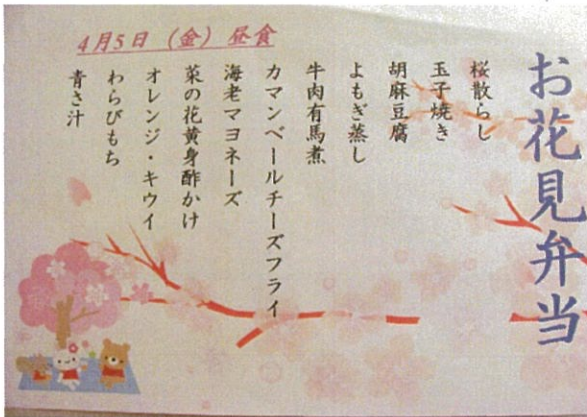 お花見弁当
4月5日（金）昼食
桜散らし
玉子焼き
胡麻豆腐
よもぎ蒸し
牛肉有馬煮
カマンベールチーズフライ
海老マヨネーズ
菜の花黄身酢かけ
オレンジ・キウイ
わらびもち
青さ汁